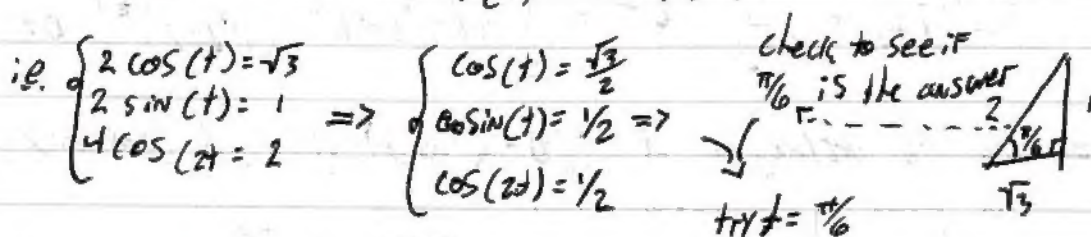 i.e. { 2 cos(t) = √3
2 sin(t) = 1
4 cos(2t = 2
=> { cos(t) = √3/2
sin(t) = 1/2 =>
cos(2t) = 1/2
check to see if
π/6 is the answer
try t = π/6
2
π/6
1
√3